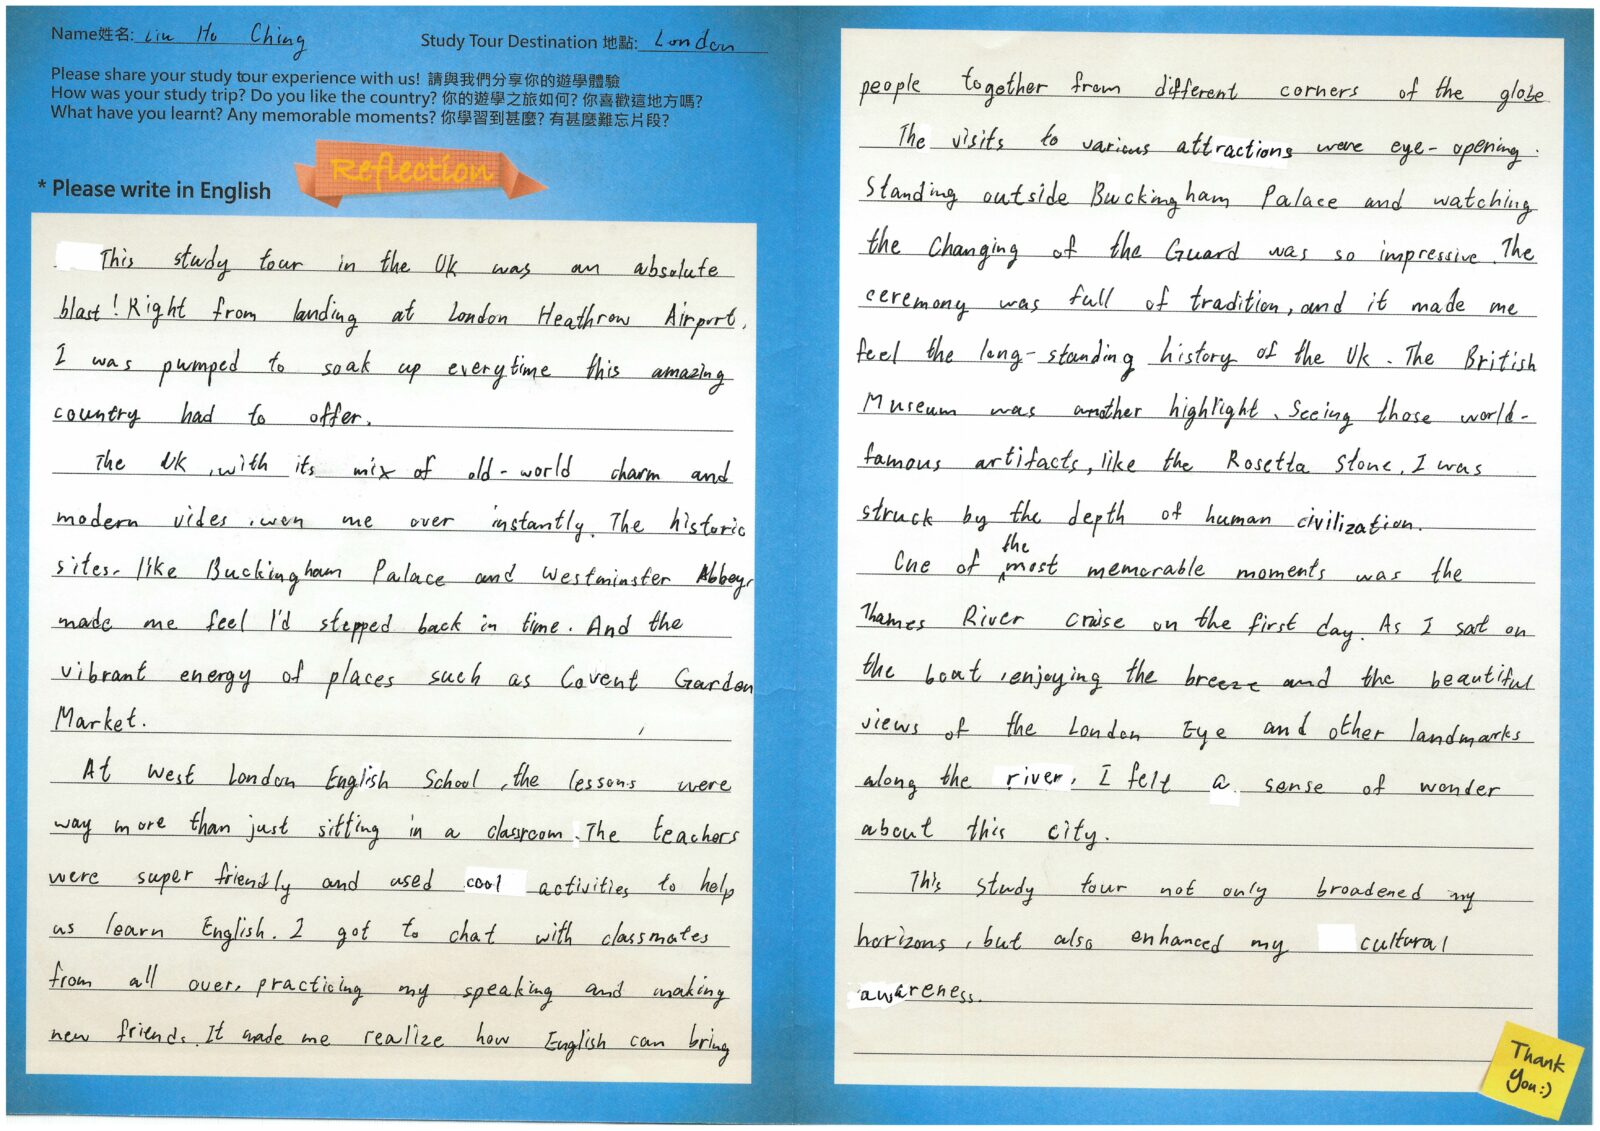 Name姓名: Liu Ho Ching
Study Tour Destination 地點: London
Please share your study tour experience with us! 請與我們分享你的遊學體驗
How was your study trip? Do you like the country? 你的遊學之旅如何? 你喜歡這地方嗎?
What have you learnt? Any memorable moments? 你學習到甚麼? 有甚麼難忘片段?
Reflection
* Please write in English
This study tour in the UK was an absolute
blast! Right from landing at London Heathrow Airport,
I was pumped to soak up everytime this amazing
country had to offer.
The UK, with its mix of old-world charm and
modern vides, won me over instantly. The historic
sites, like Buckingham Palace and Westminster Abbey,
made me feel I'd stepped back in time. And the
vibrant energy of places such as Covent Garden
Market.
At West London English School, the lessons were
way more than just sitting in a classroom. The teachers
were super friendly and used cool activities to help
us learn English. I got to chat with classmates
from all over, practicing my speaking and making
new friends. It made me realize how English can bring
people together from different corners of the globe
The visits to various attractions were eye-opening.
Standing outside Buckingham Palace and watching
the Changing of the Guard was so impressive. The
ceremony was full of tradition, and it made me
feel the long-standing history of the UK. The British
Museum was another highlight. Seeing those world-
famous artifacts, like the Rosetta Stone, I was
struck by the depth of human civilization.
One of the most memorable moments was the
Thames River cruise on the first day. As I sat on
the boat, enjoying the breeze and the beautiful
views of the London Eye and other landmarks
along the river, I felt a sense of wonder
about this city.
This study tour not only broadened my
horizons, but also enhanced my cultural
awareness.
Thank
You:)